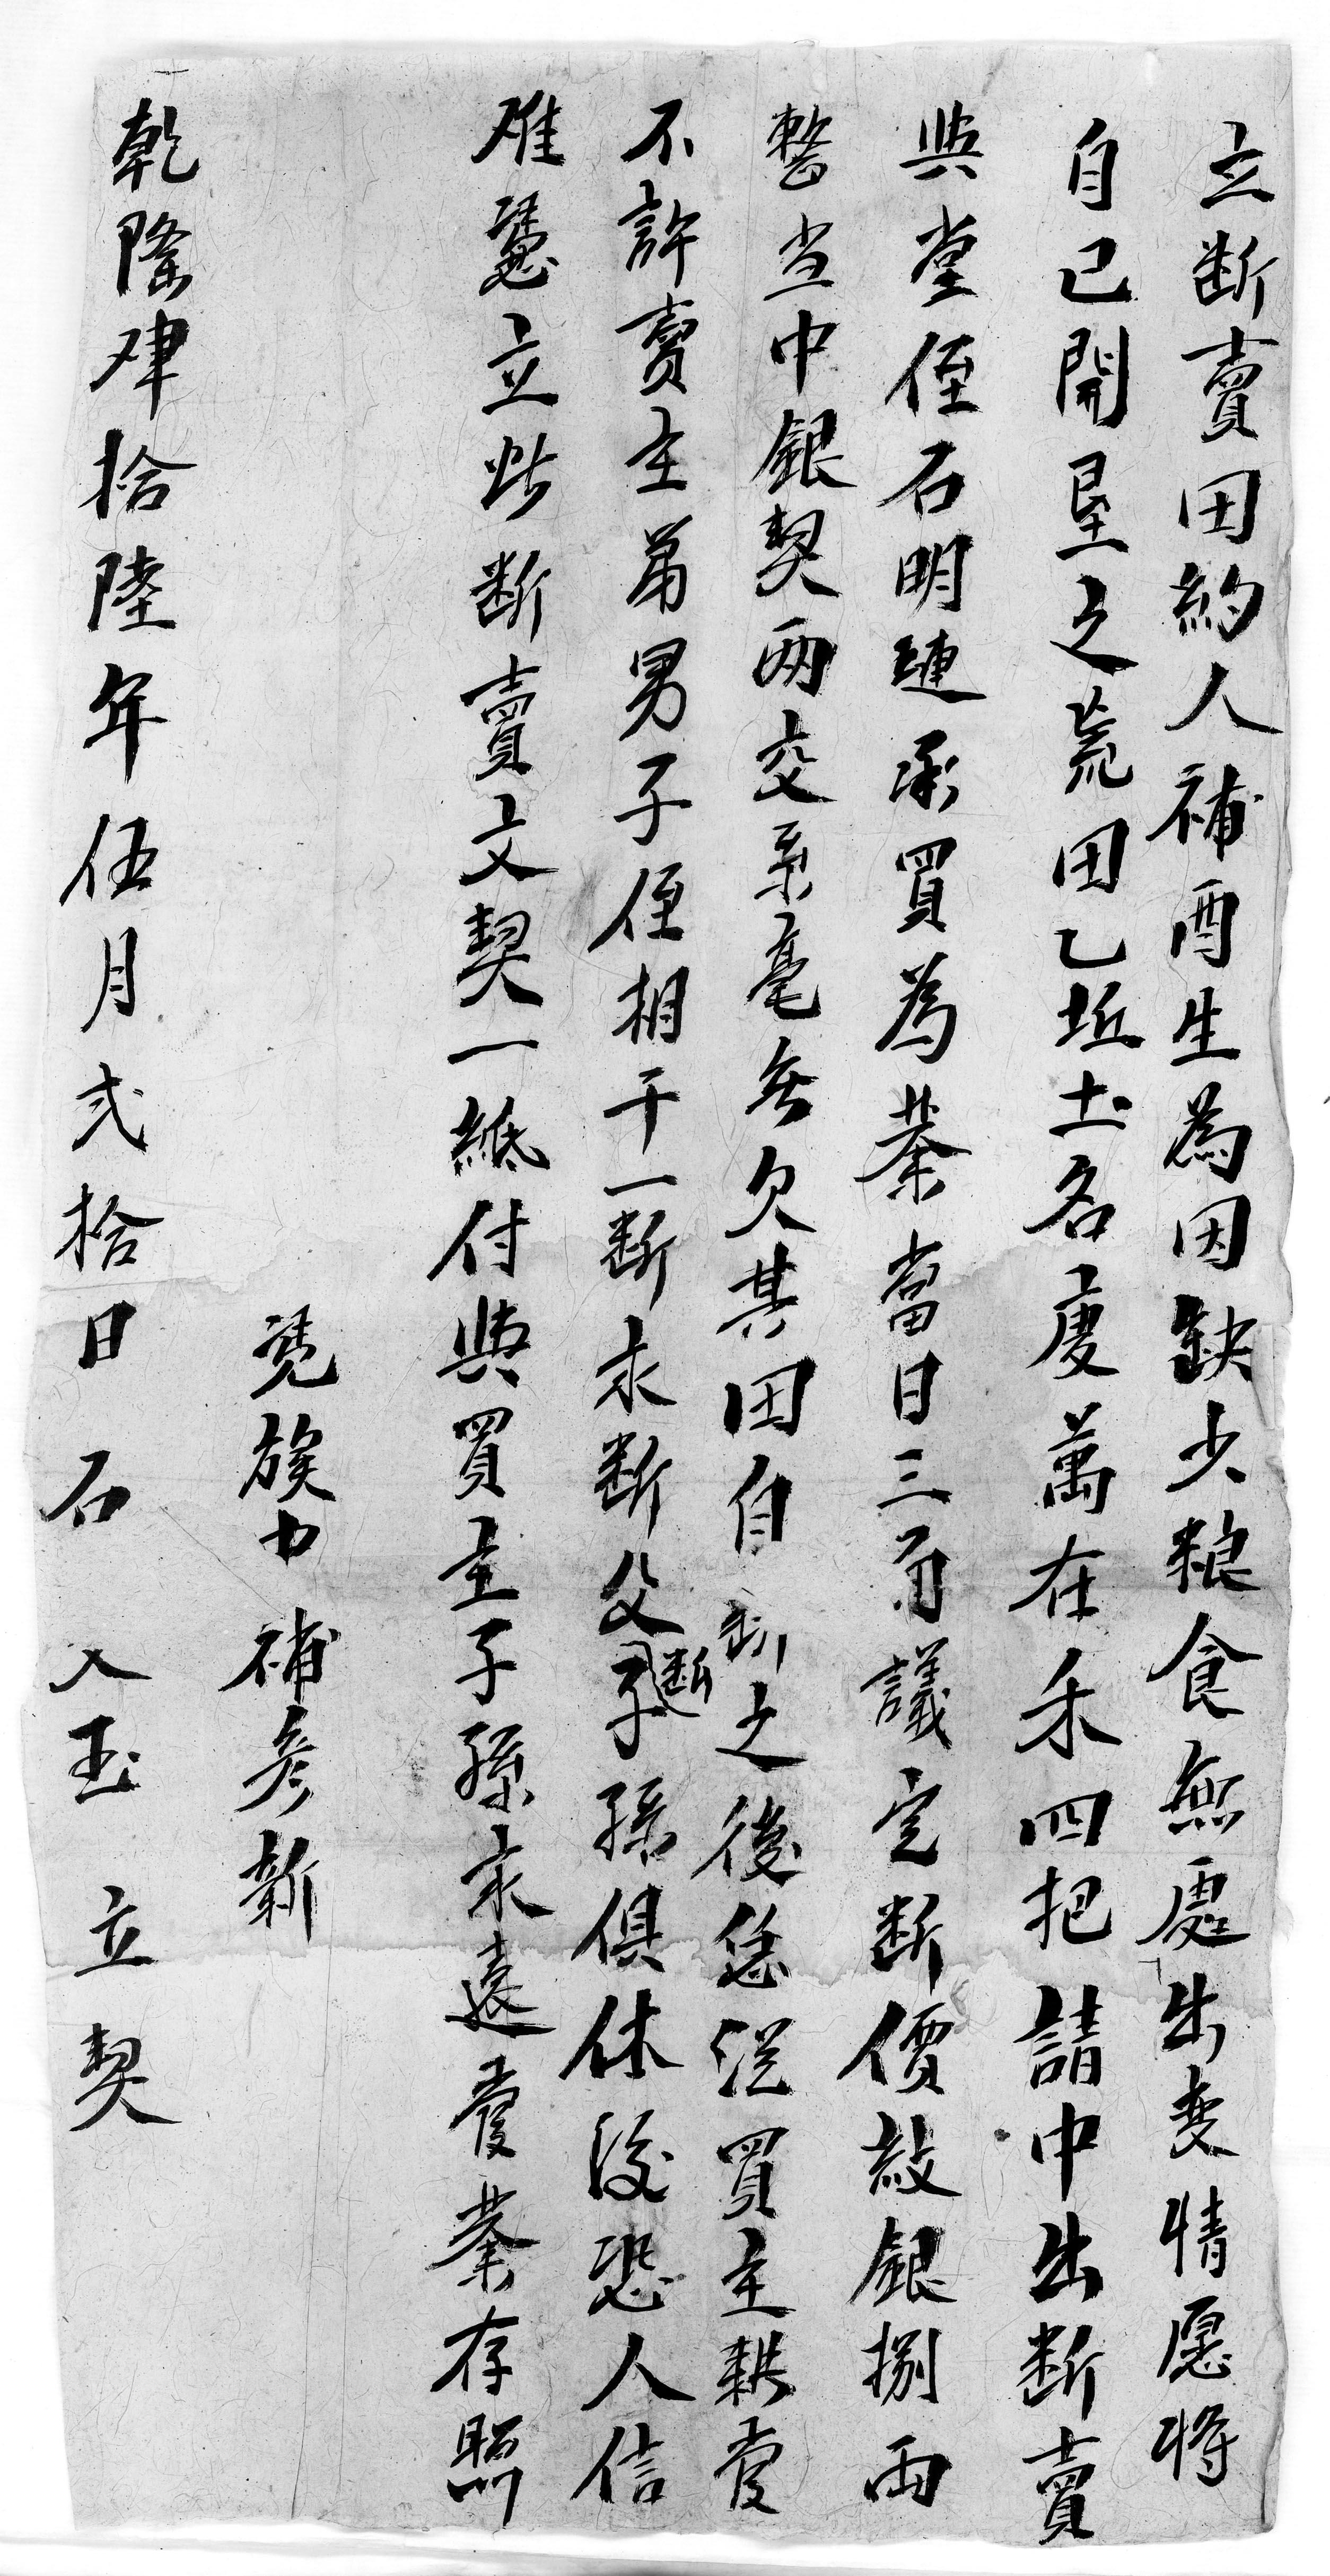 立断賣田約人補酉生為因缺少粮食無處出变情愿将
自己開垦之荒田乙坵土名庱萬在禾四把請中出断賣
與堂侄石明連承買為業當日三面議定断價紋銀捌両
整当中銀契两交系毫無欠其田自断之後恁從買主耕管
不許賣主弟男子侄相干一断永断父断子孫俱休後恐人信
难憑立此断賣文契一紙付與買主子孫永遠管業存照
憑族中 補彦新
乾隆肆拾陸年伍月弍拾日 石 入玉 立契